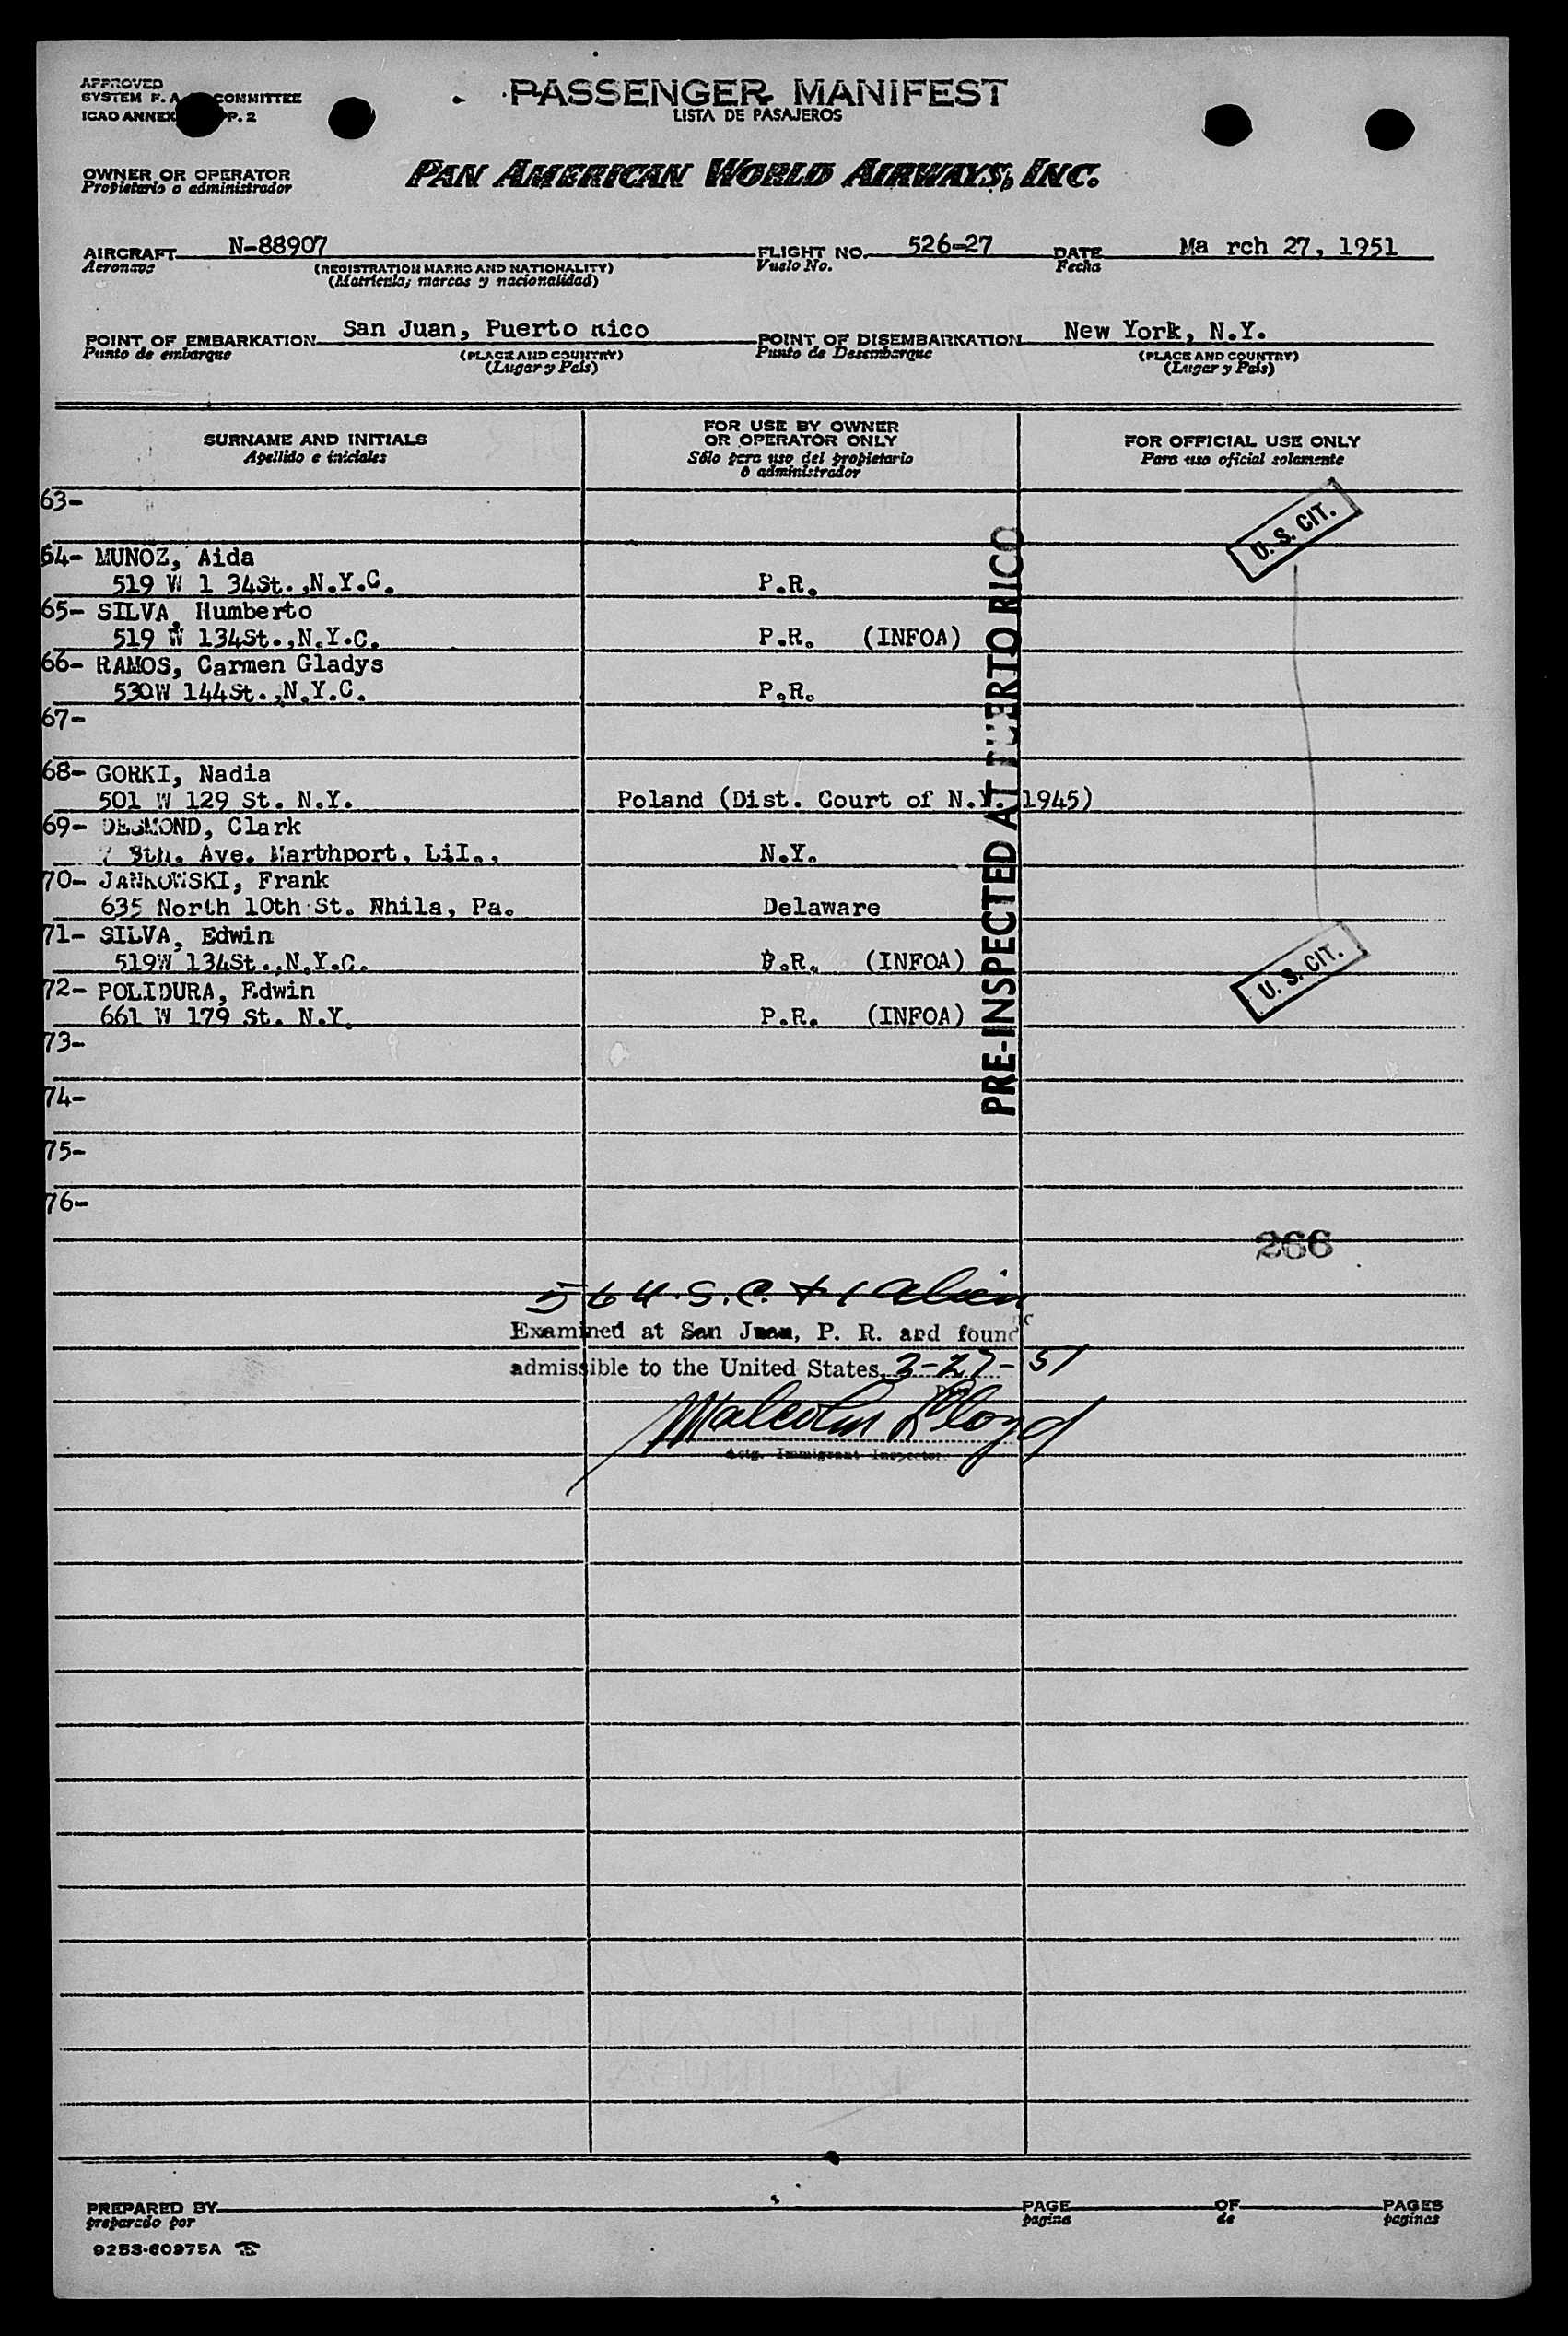 APPROVED
SYSTEM F. A. COMMITTEE
ICAO ANNEX P. 2
PASSENGER MANIFEST
LISTA DE PASAJEROS
OWNER OR OPERATOR
Propietario o administrador
PAN AMERICAN WORLD AIRWAYS, INC.
AIRCRAFT N-88907 FLIGHT NO. 526-27 DATE Ma rch 27, 1951
Aeronave (REGISTRATION MARKS AND NATIONALITY) Vuelo No. Fecha
(Matricula, marcas y nacionalidad)
POINT OF EMBARKATION San Juan, Puerto Rico POINT OF DISEMBARKATION New York, N.Y.
Punto de embarque (PLACE AND COUNTRY) Punto de Desembarque (PLACE AND COUNTRY)
(Lugar y País) (Lugar y País)
SURNAME AND INITIALS
Apellido e iniciales
FOR USE BY OWNER
OR OPERATOR ONLY
Sólo para uso del propietario
o administrador
FOR OFFICIAL USE ONLY
Para uso oficial solamente
63-
U. S. CIT.
64- MUNOZ, Aida
519 W 1 34St.,N.Y.C. P.R.
65- SILVA, Humberto
519 W 134St.,N.Y.C. P.R. (INFOA)
66- RAMOS, Carmen Gladys
530W 144St.,N.Y.C. P.R.
67-
68- GORKI, Nadia
501 W 129 St. N.Y. Poland (Dist. Court of N.Y. 1945)
69- DESMOND, Clark
8th. Ave. Marthport, LiI., N.Y.
70- JANKOWSKI, Frank
635 North 10th St. Nhila, Pa. Delaware
71- SILVA, Edwin
519W 134St.,N.Y.C. P.R. (INFOA)
72- POLIDURA, Edwin
661 W 179 St. N.Y. P.R. (INFOA)
U. S. CIT.
PRE-INSPECTED AT PUERTO RICO
73-
74-
75-
76-
266
56 U.S.C. + 1 alien
Examined at San Juan, P. R. and found
admissible to the United States, 3-27-51
Malcolm Lloyd
Actg. Immigrant Inspector.
PREPARED BY PAGE OF PAGES
preparado por pagina de paginas
9253-60975A